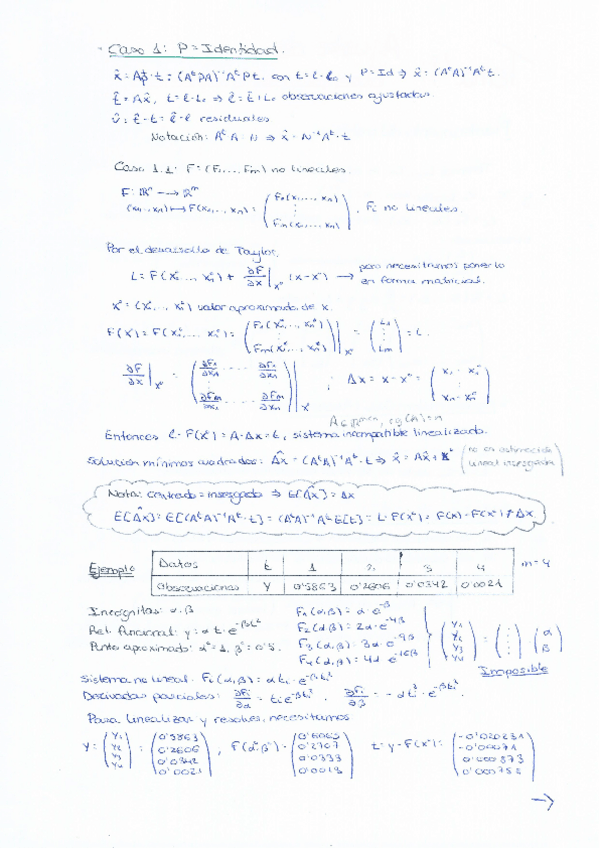 · Caso 1: P = Identidad.
x̂ = Aβ·t = (AᵗPA)⁻¹AᵗPt. con t = l - l₀ y P = Id ⇒ x̂ = (AᵗA)⁻¹Aᵗt.
t̂ = Ax̂, t = l - l₀ ⇒ l̂ = t̂ + l₀ observaciones ajustadas.
v̂ = t̂ - t = l̂ - l residuales
Notación: AᵗA = N ⇒ x̂ = N⁻¹Aᵗ·t
Caso 1.1: F = (F₁, ..., Fm) no lineales.
F: ℝⁿ → ℝᵐ
(x₁, ..., xn) ↦ F(x₁, ..., xn) = (F₁(x₁, ..., xn) ⋮ Fm(x₁, ..., xn)), Fi no lineales.
Por el desarrollo de Taylor,
L = F(x₁°, ..., xn°) + ∂F/∂x |x° (x - x°) → pero necesitamos ponerlo
en forma matricial.
x° = (x₁°, ..., xn°) valor aproximado de x.
F(x°) = F(x₁°, ..., xn°) = (F₁(x₁°, ..., xn°) ⋮ Fm(x₁°, ..., xn°)) |x° = (L₁ ⋮ Lm) = L.
∂F/∂x |x° = (∂F₁/∂x₁ ... ∂F₁/∂xn ⋮ ∂Fm/∂x₁ ... ∂Fm/∂xn) |x° ; Δx = x - x° = (x₁ - x₁° ⋮ xn - xn°)
rg(A) = n
Entonces L - F(x°) = A·Δx = t, sistema incompatible linealizado.
Solución mínimos cuadrados: Δx̂ = (AᵗA)⁻¹Aᵗ·t ⇒ x̂ = Δx̂ + x° (no es estimación lineal insesgada)
Nota: centrado = insesgado ⇒ E[Δx̂] = Δx
E[Δx̂] = E[(AᵗA)⁻¹Aᵗ·t] = (AᵗA)⁻¹AᵗE[t] = L - F(x°) = F(x) - F(x°) ≠ Δx.
Ejemplo
Datos t 1 2 3 4 m = 4
Observaciones Y 0'5863 0'2606 0'0342 0'0021
Incógnitas: α, β
Rel. funcional: y = αt·e^(-βt²)
Punto aproximado: α° = 1, β° = 0'5.
F₁(α,β) = α·e^(-β)
F₂(α,β) = 2α·e^(-4β)
F₃(α,β) = 3α·e^(-9β)
F₄(α,β) = 4α·e^(-16β)
(y₁ y₂ y₃ y₄) = (⋮ ⋮) (α β)
Imposible
Sistema no lineal: Fi(α,β) = αti·e^(-βti²)
Derivadas parciales: ∂Fi/∂α = ti·e^(-βti²), ∂Fi/∂β = -αti³·e^(-βti²).
Para linealizar y resolver, necesitamos
Y = (y₁ y₂ y₃ y₄) = (0'5863 0'2606 0'0342 0'0021), F(α°,β°) = (0'6065 0'2707 0'0333 0'0013) t = y - F(x°) =
→